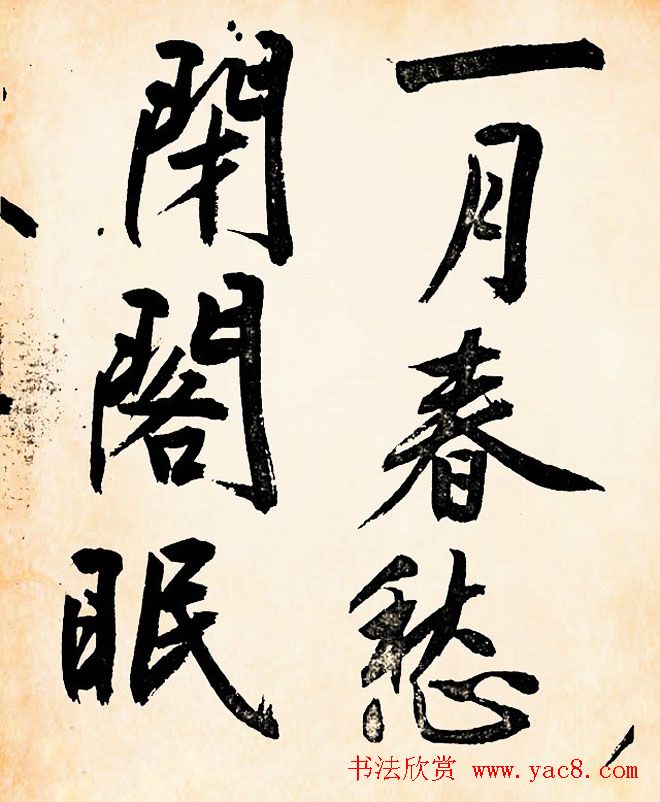 一月春愁
閉閣眠
书法欣赏 www.yac8.com